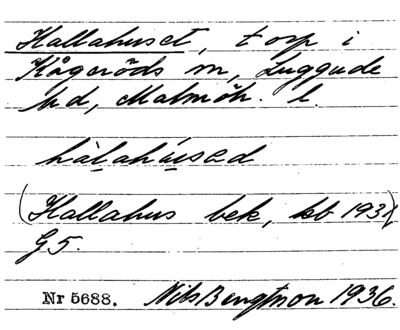 Hallahuset, torp i
Kågeröds sn, Luggude
hd, Malmöh. l.
hàlahúsad
(Hallahus bek, kb 193)
G5.
Nr 5688. Nils Bengtson 1936.